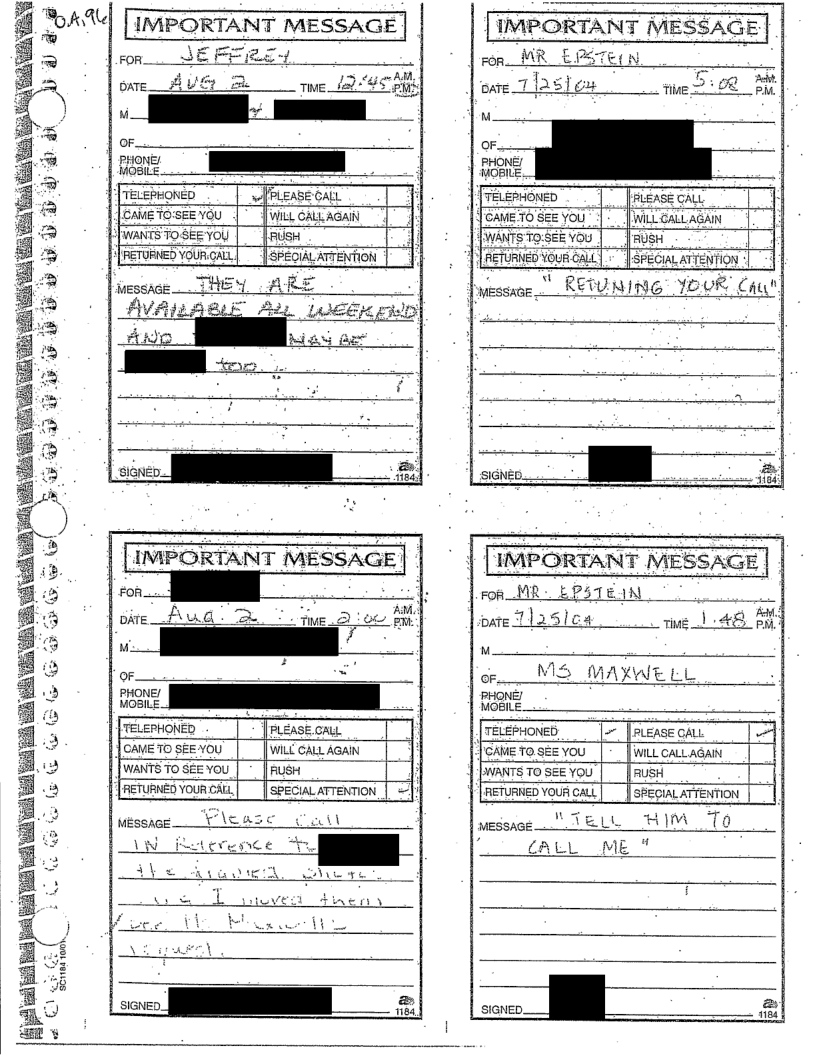 O.A. 96
IMPORTANT MESSAGE
FOR JEFFREY
DATE AUG 2 TIME 12:45 A.M. P.M.
M
OF
PHONE/
MOBILE
TELEPHONED PLEASE CALL
CAME TO SEE YOU WILL CALL AGAIN
WANTS TO SEE YOU RUSH
RETURNED YOUR CALL SPECIAL ATTENTION
MESSAGE THEY ARE
AVAILABLE ALL WEEKEND
AND MAYBE
too
SIGNED
1184
IMPORTANT MESSAGE
FOR MR EPSTEIN
DATE 7/25/04 TIME 5:08 A.M. P.M.
M
OF
PHONE/
MOBILE
TELEPHONED PLEASE CALL
CAME TO SEE YOU WILL CALL AGAIN
WANTS TO SEE YOU RUSH
RETURNED YOUR CALL SPECIAL ATTENTION
MESSAGE "RETUNING YOUR CALL"
SIGNED
1184
IMPORTANT MESSAGE
FOR
DATE Aug 2 TIME 2:00 A.M. P.M.
M
OF
PHONE/
MOBILE
TELEPHONED PLEASE CALL
CAME TO SEE YOU WILL CALL AGAIN
WANTS TO SEE YOU RUSH
RETURNED YOUR CALL SPECIAL ATTENTION
MESSAGE Please Call
IN Reference to
the
I moved them
per Ms Maxwell's
request.
SIGNED
1184
SC1184 10/01
IMPORTANT MESSAGE
FOR MR EPSTEIN
DATE 7/25/04 TIME 1:48 A.M. P.M.
M
OF MS MAXWELL
PHONE/
MOBILE
TELEPHONED PLEASE CALL
CAME TO SEE YOU WILL CALL AGAIN
WANTS TO SEE YOU RUSH
RETURNED YOUR CALL SPECIAL ATTENTION
MESSAGE "TELL HIM TO
CALL ME"
SIGNED
1184